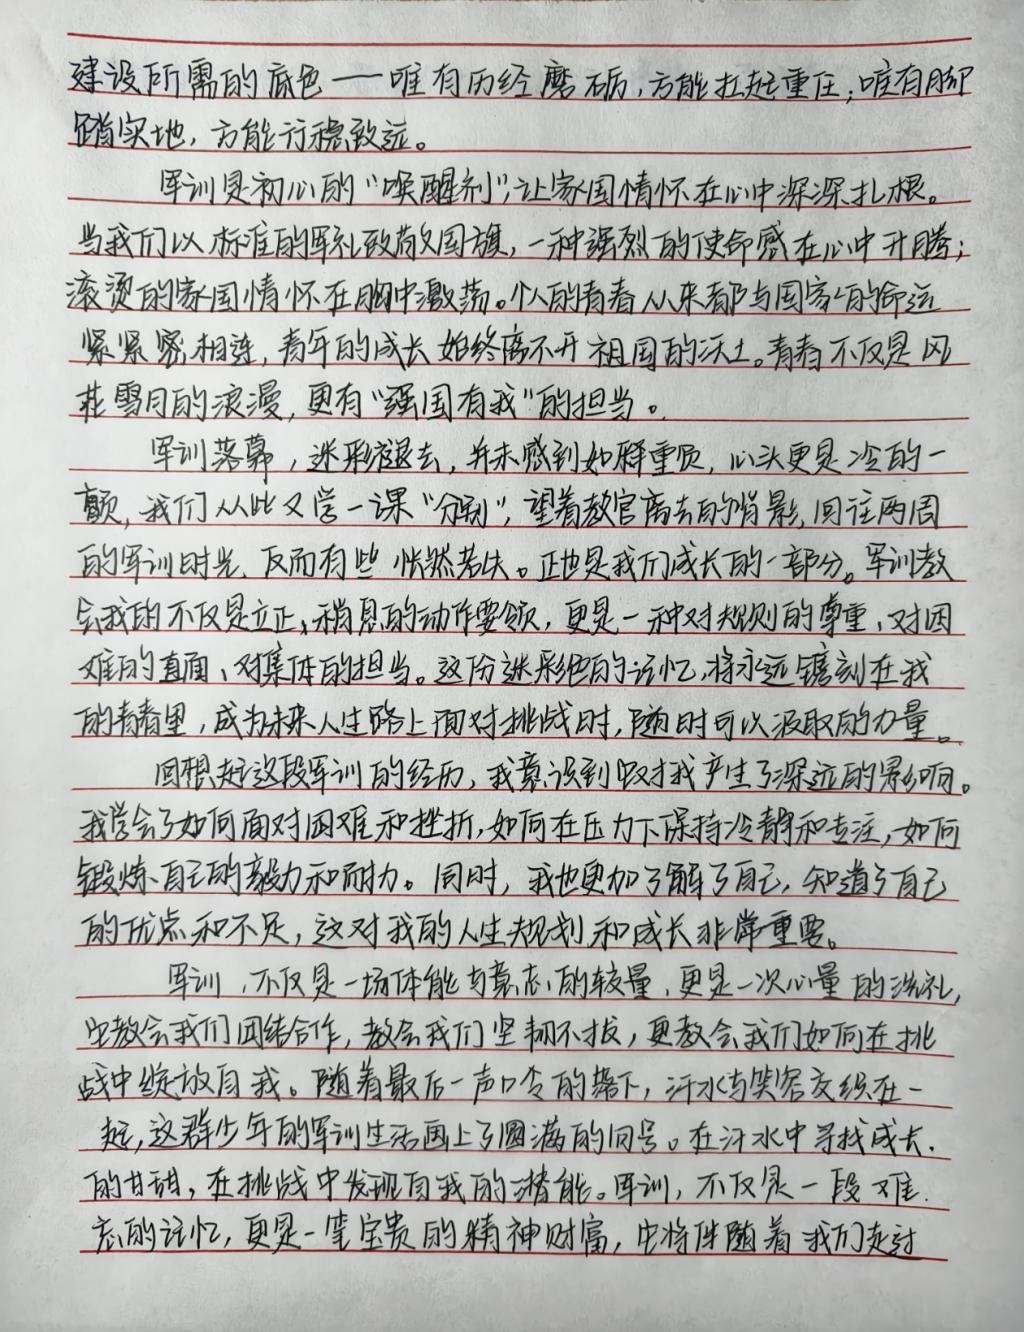 建设所需的底色——唯有历经磨砺，方能扛起重任；唯有脚
踏实地，方能行稳致远。
军训是初心的“唤醒剂”，让家国情怀在心中深深扎根。
当我们以标准的军礼致敬国旗，一种强烈的使命感在心中升腾；
滚烫的家国情怀在胸中激荡。个人的青春从来都与国家的命运
紧紧紧密相连，青年的成长始终离不开祖国的沃土。青春不仅是风
花雪月的浪漫，更有“强国有我”的担当。
军训落幕，迷彩褪去，并未感到如释重负，心头更是冷的一
颤，我们从此又学一课“分别”，望着教官离去的背影，回往两周
的军训时光，反而有些怅然若失。正也是我们成长的一部分。军训教
会我的不仅是立正、稍息的动作要领，更是一种对规则的尊重、对困
难的直面、对集体的担当。这份迷彩色的记忆，将永远镌刻在我
的青春里，成为未来人生路上面对挑战时，随时可以汲取的力量。
回想起这段军训的经历，我意识到它对我产生了深远的影响。
我学会了如何面对困难和挫折，如何在压力下保持冷静和专注，如何
锻炼自己的毅力和耐力。同时，我也更加了解了自己，知道了自己
的优点和不足，这对我的人生规划和成长非常重要。
军训，不仅是一场体能与意志的较量，更是一次心量的洗礼，
它教会我们团结合作，教会我们坚韧不拔，更教会我们如何在挑
战中绽放自我。随着最后一声口令的落下，汗水与笑容交织在一
起，这群少年的军训生活画上了圆满的句号。在汗水中寻找成长
的甘甜，在挑战中发现自我的潜能。军训，不仅是一段难
忘的记忆，更是一笔宝贵的精神财富，它将伴随着我们走过